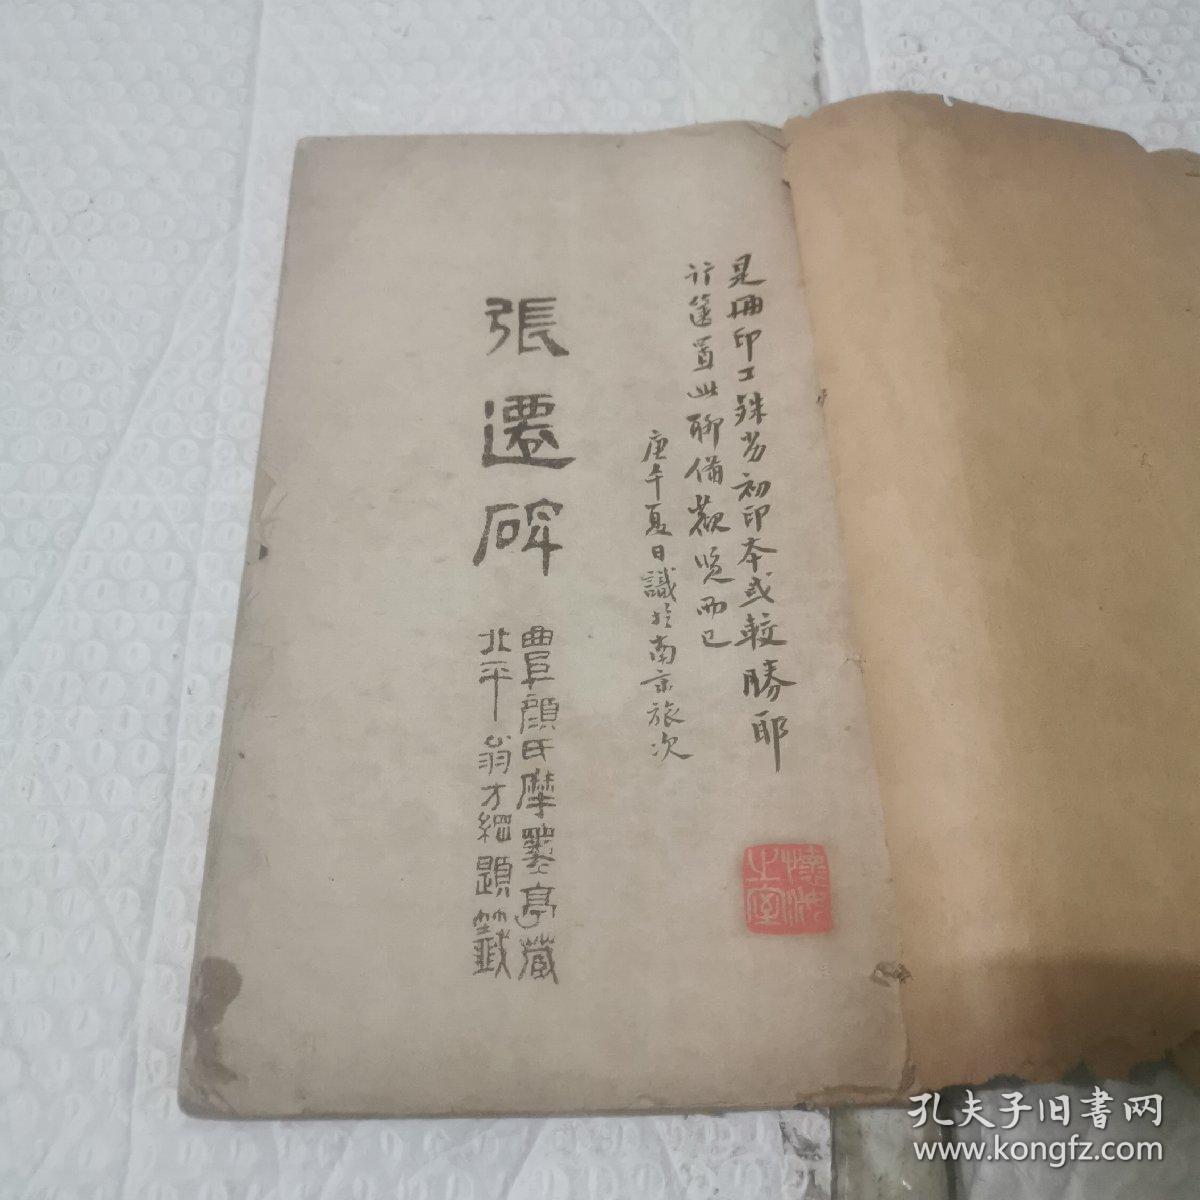 是冊印工殊劣初印本或較勝耶
行篋置此聊備觀覽而已
庚午夏日識於南京旅次
張遷碑
曲阜顏氏摩墨亭藏
北平翁方綱題籤
之室
孔夫子旧書网
www.kongfz.com